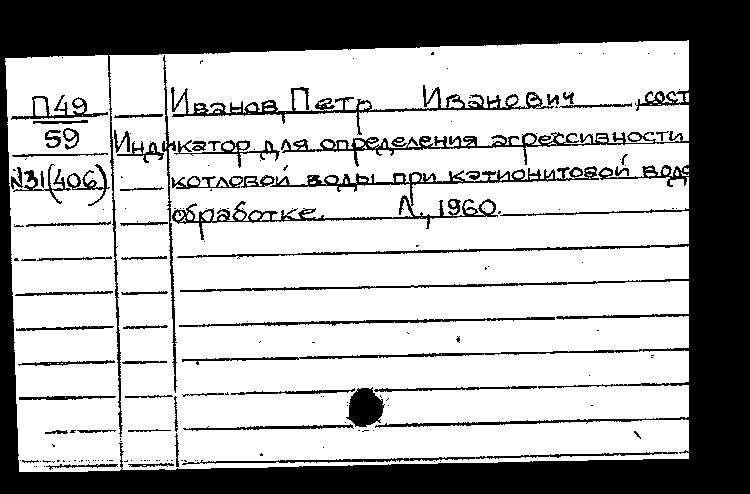 П49 Иванов, Петр Иванович, сост
59 Индикатор для определения агрессивности
№31(406) котловой воды при катионитовой водо
обработке. Л., 1960.